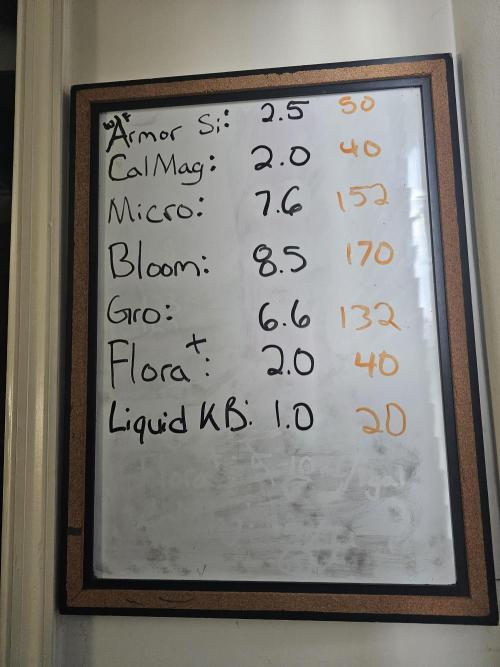 Armor Si: 2.5 50
CalMag: 2.0 40
Micro: 7.6 152
Bloom: 8.5 170
Gro: 6.6 132
Flora+: 2.0 40
Liquid KB: 1.0 20